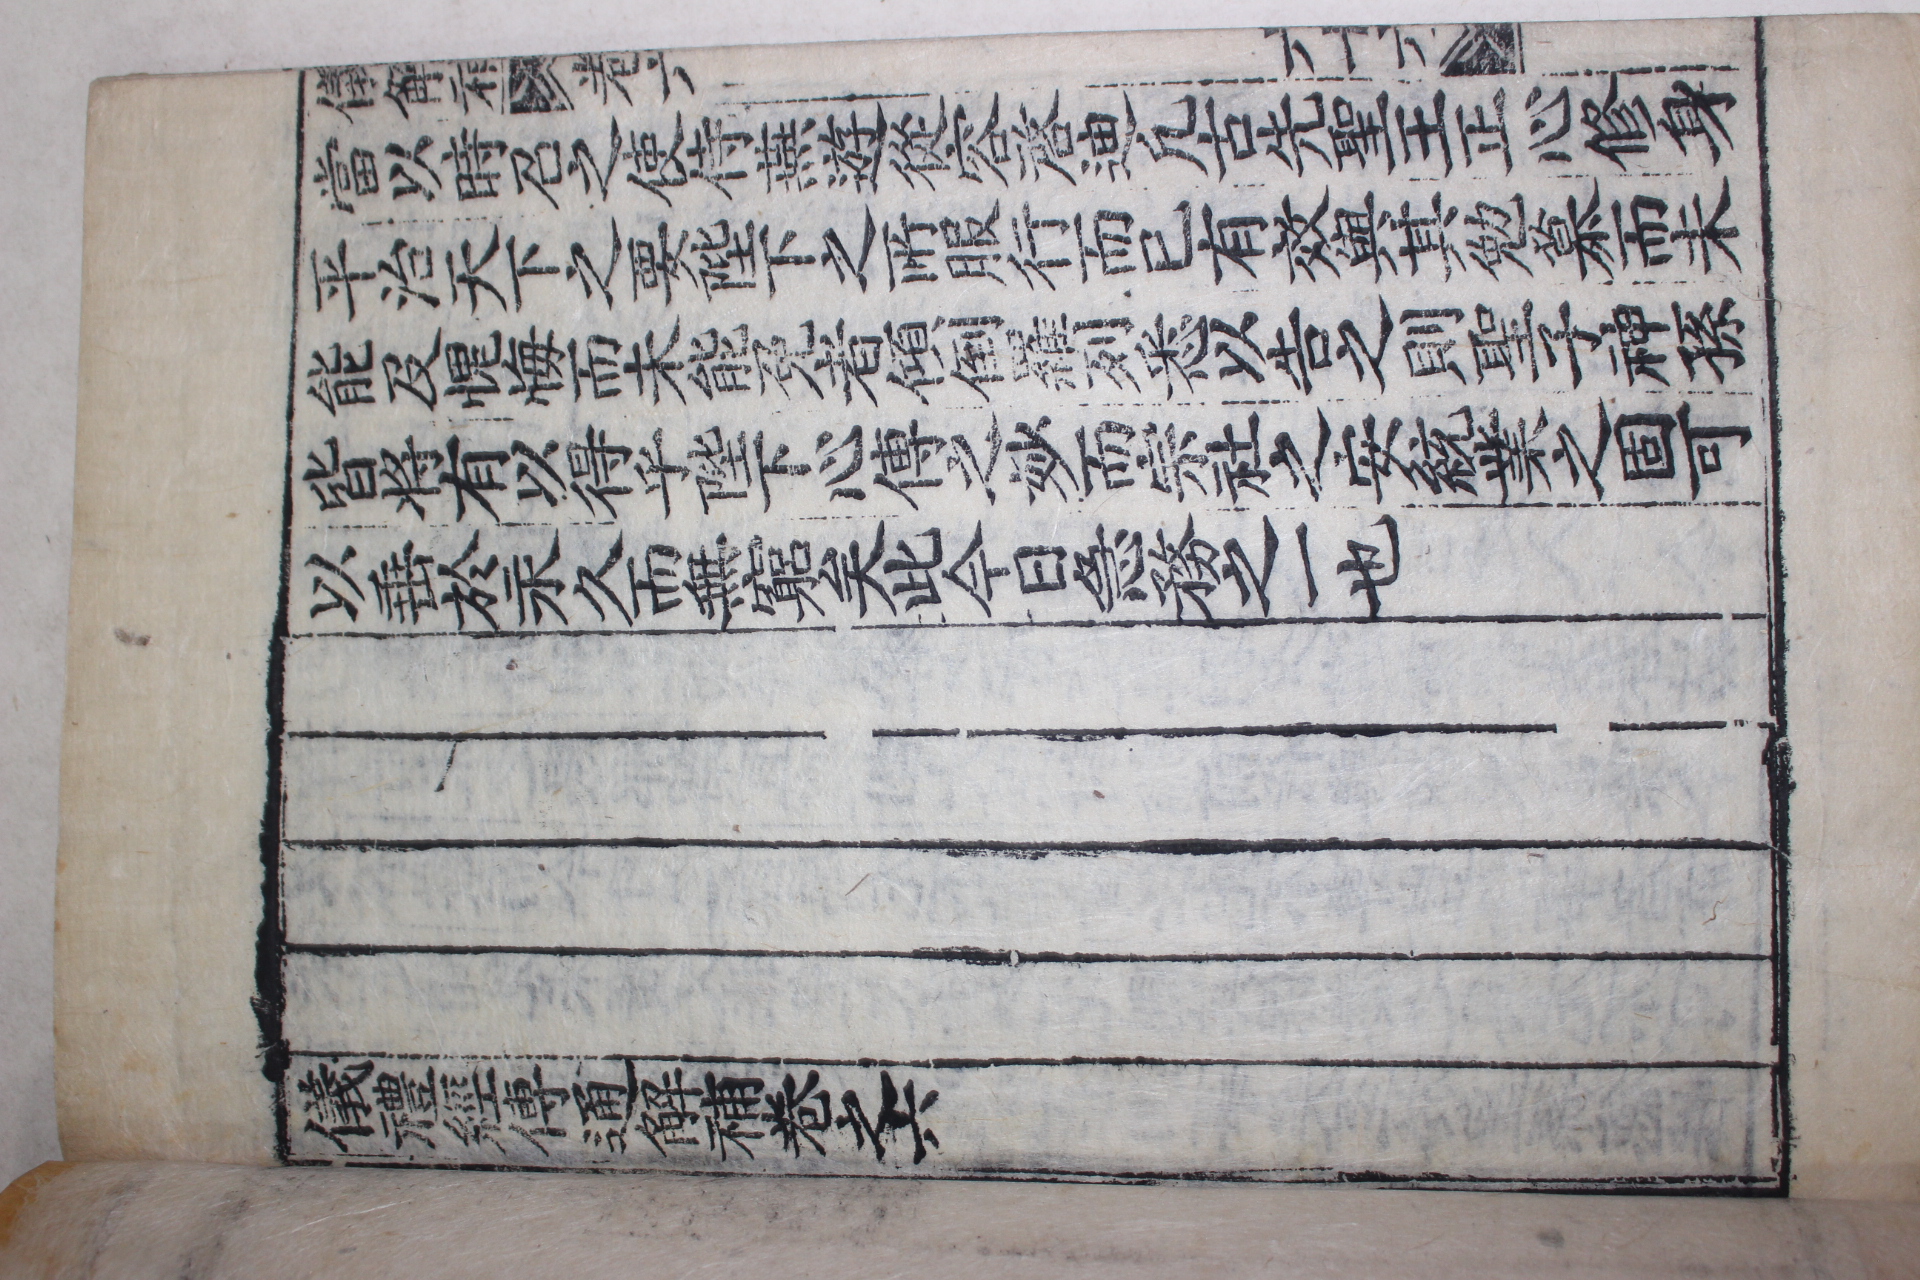 當以時召之使侍燕遊從容啓迪凡古先聖王正心修身
平治天下之要陛下之所服行而已有效與其勉慕而未
能及愧悔而未能免者傾倒羅列悉以告之則聖子神孫
皆將有以得乎陛下心傳之妙而宗社之安統業之固可
以垂於永久而無窮矣此今日急務之一也
儀禮經傳通解補卷之六